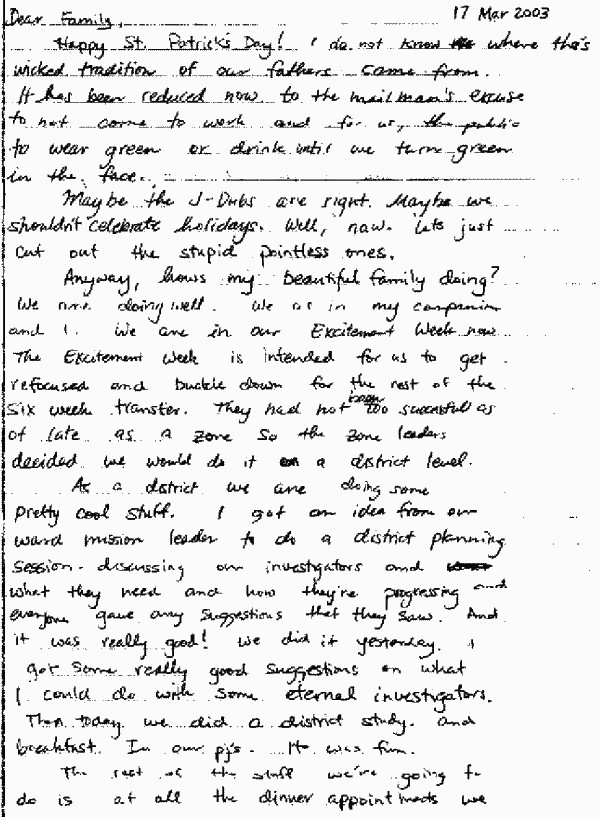 17 Mar 2003
Dear Family,
Happy St. Patrick's Day! I do not know where this
wicked tradition of our fathers came from.
It has been reduced now to the mailman's excuse
to not come to work and for us, the public
to wear green or drink until we turn green
in the face.
Maybe the J-Dubs are right. Maybe we
shouldn't celebrate holidays. Well, naw. Lets just
cut out the stupid pointless ones.
Anyway, hows my beautiful family doing?
We are doing well. We as in my companion
and I. We are in our Excitement Week now
The Excitement Week is intended for us to get
refocused and buckle down for the rest of the
six week transfer. They had not been too successful as
of late as a zone so the zone leaders
decided we would do it on a district level.
As a district we are doing some
pretty cool stuff. I got an idea from our
ward mission leader to do a district planning
session - discussing our investigators and
what they need and how they're progressing and
everyone gave any suggestions that they saw. And
it was really good! We did it yesterday. I
got some really good suggestions on what
I could do with some eternal investigators.
Then today we did a district study. and
breakfast. In our pj's. It was fun.
The rest of the stuff we're going to
do is at all the dinner appointments we